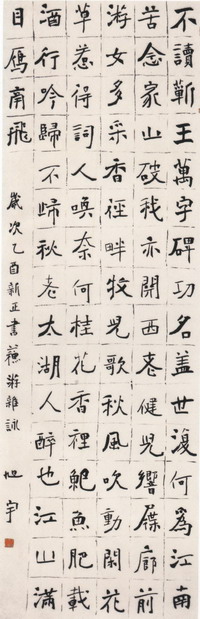 不讀蘄王萬字碑功名蓋世復何為江南
苦念家山破我亦開西老健兒響屧廊前
游女多采香徑畔牧兒歌秋風吹動閑花
草惹得詞人喚奈何桂花香裡鮑魚肥載
酒行吟歸不歸秋老太湖人醉也江山滿
目鴈南飛
歲次乙酉新正書蘇游雜詠
旭宇